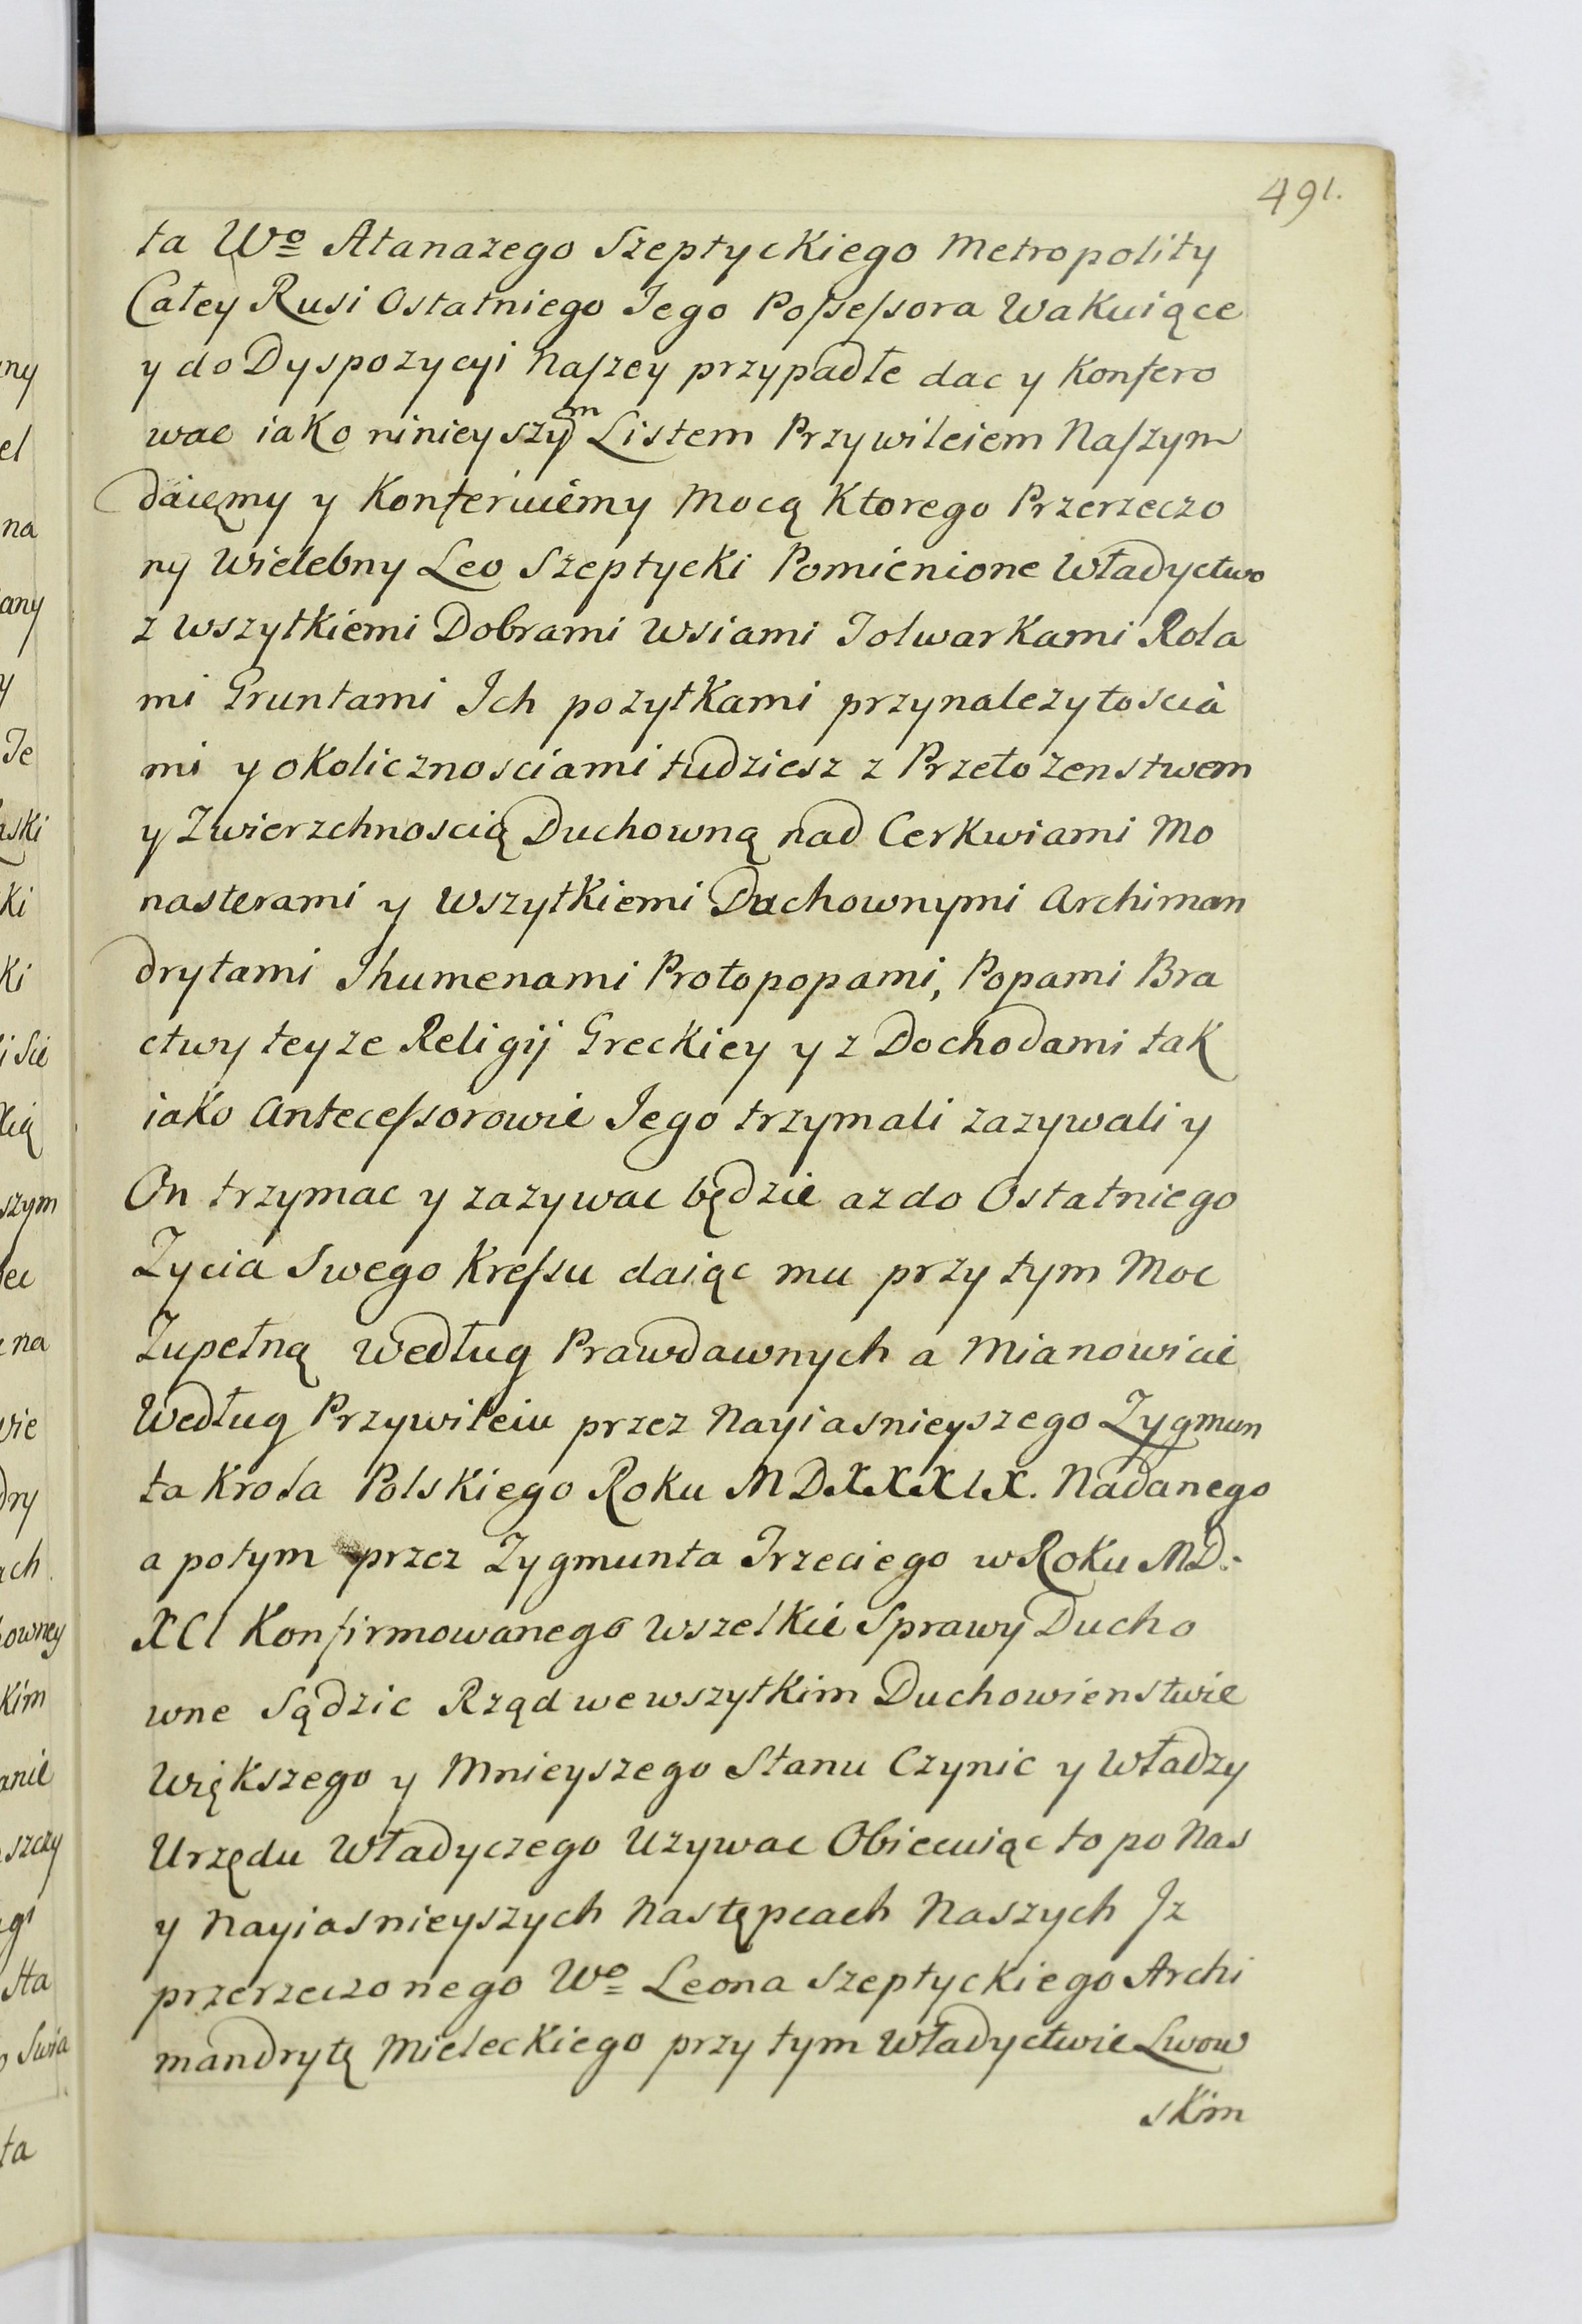 491.
ta Wo Atanazego Szeptyckiego Metropolity
Całey Rusi Ostatniego Jego Possessora Wakuiące
y do Dyspozycyi Naszey przypadłe dac y Konfero
wac iako ninieyszym Listem Przywileiem Naszym
daiemy y Konferuiemy Mocą Ktorego Przerzeczo
ny Wielebny Leo Szeptycki Pomienione Władyctwo
z wszytkiemi Dobrami Wsiami Folwarkami Rola
mi Gruntami Ich pozytkami przynalezytoscia
mi y okolicznosciami tudziesz z Przełozenstwem
y Zwierzchnoscią Duchowną nad Cerkwiami Mo
nasterami y Wszytkiemi Duchownymi Archiman
drytami Ihumenami Protopopami, Popami Bra
ctwy teyze Religij Greckiey y z Dochodami tak
iako Antecessorowie Jego trzymali zazywali y
On trzymac y zazywac będzie az do Ostatniego
Zycia Swego Kressu daiąc mu przy tym Moc
Zupełną według Praw dawnych a Mianowicie
Według Przywileiu przez Nayiasnieyszego Zygmun
ta Krola Polskiego Roku MDXXXIX. Nadanego
a potym przez Zygmunta Trzeciego w Roku MD.
XCI Konfirmowanego Wszelkie Sprawy Ducho
wne Sądzic Rząd we wszytkim Duchowienstwie
Większego y Mnieyszego Stanu Czynic y Władzy
Urzędu Władyczego Uzywac Obiecuiąc to po Nas
y Nayiasnieyszych Następcach Naszych Iz
przerzeczonego Wo Leona Szeptyckiego Archi
mandrytę Mieleckiego przy tym Władyctwie Lwow
skim